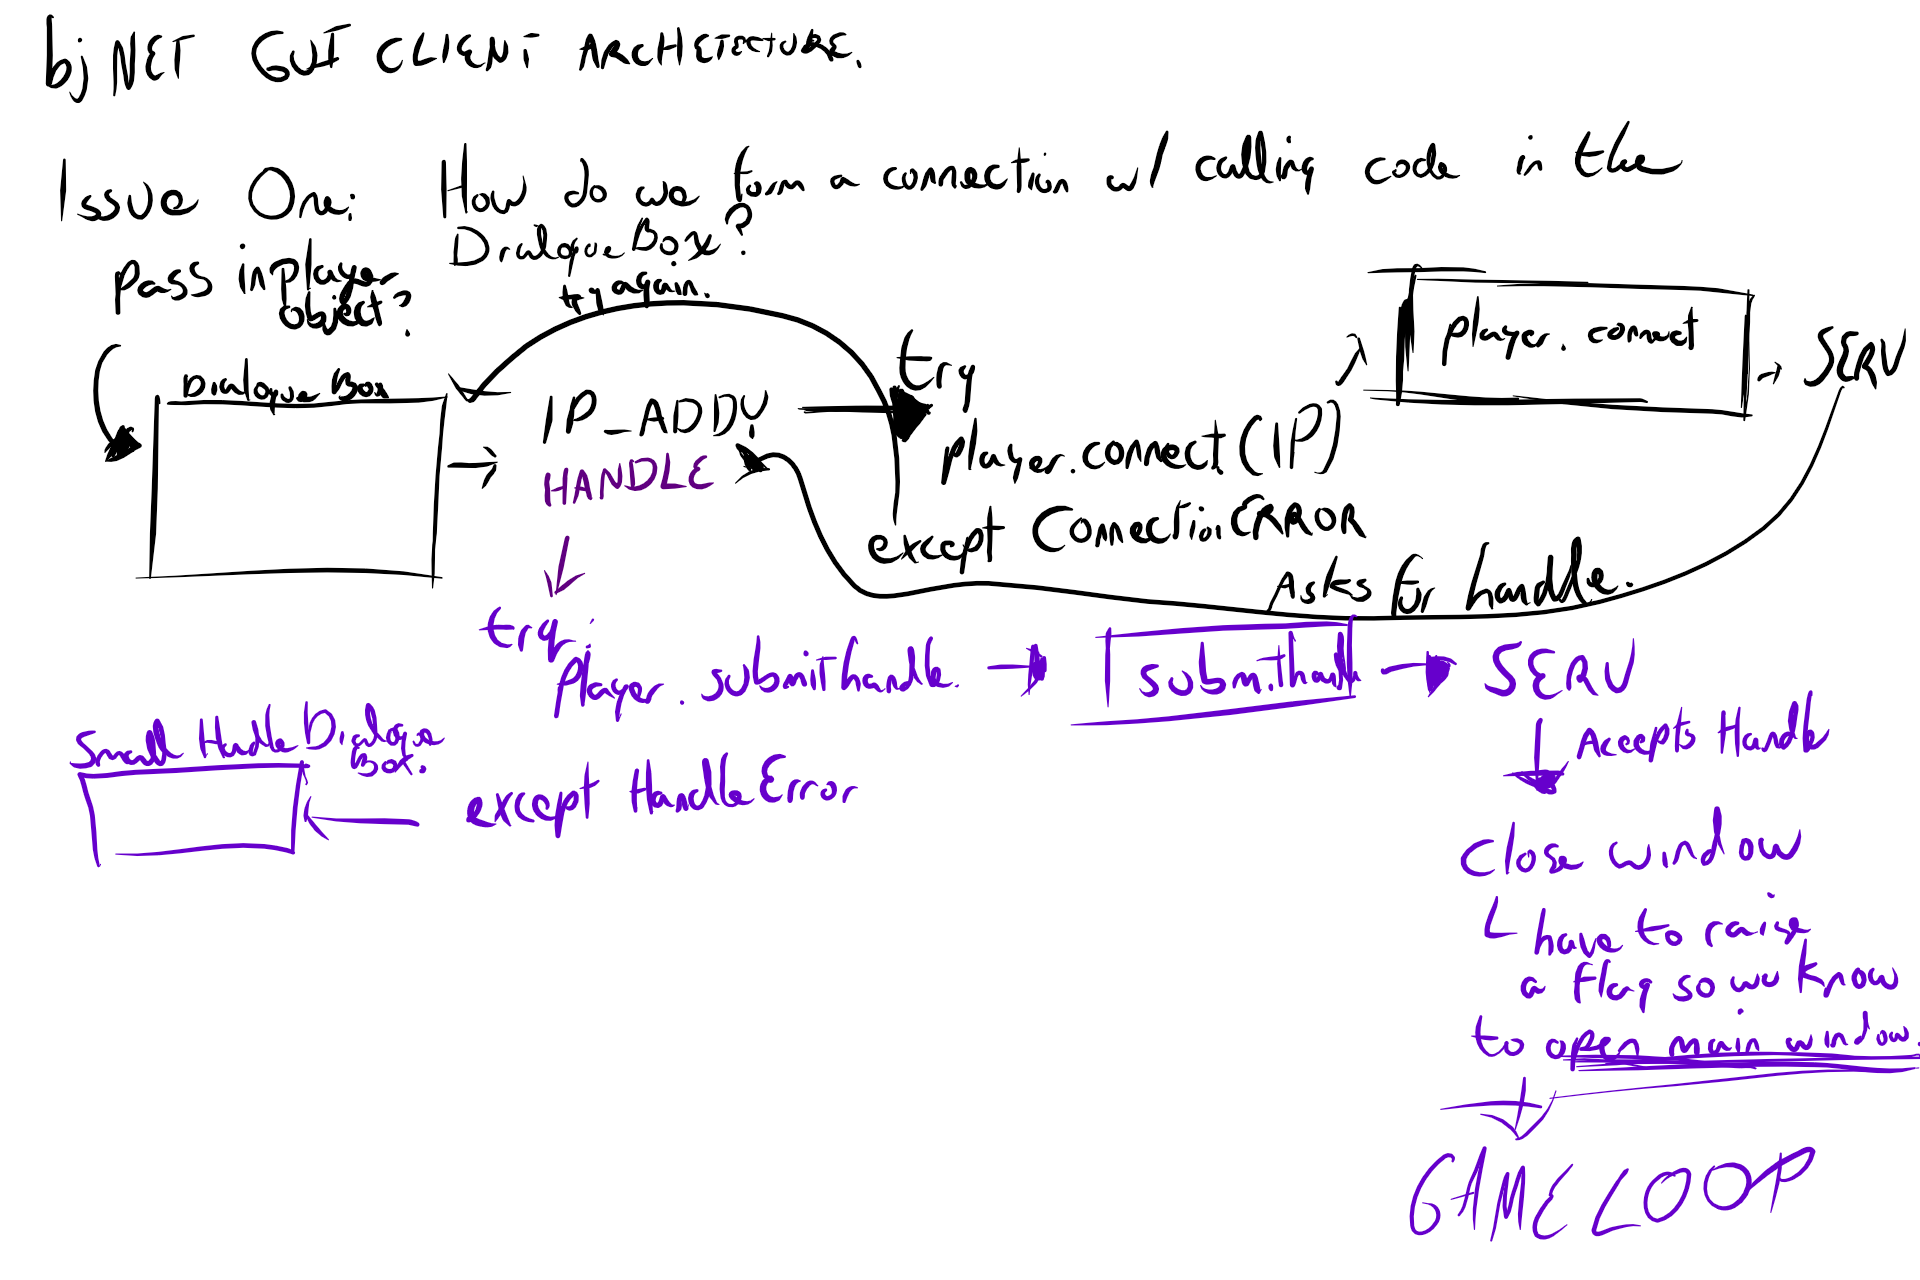 bjNET GUI CLIENT ARCHETECTURE.
Issue One: How do we form a connection w/ calling code in the
DialogueBox?
pass in player
object?
try again.
Dialogue Box
IP_ADDY
HANDLE
try
player.connect(IP)
except ConnectionERROR
player.connect
SERV
Asks for handle.
try:
player.submithandle.
submithandle
SERV
Accepts Handle
Small Handle Dialogue
Box.
except HandleError
Close window
have to raise
a flag so we know
to open main window.
GAME LOOP